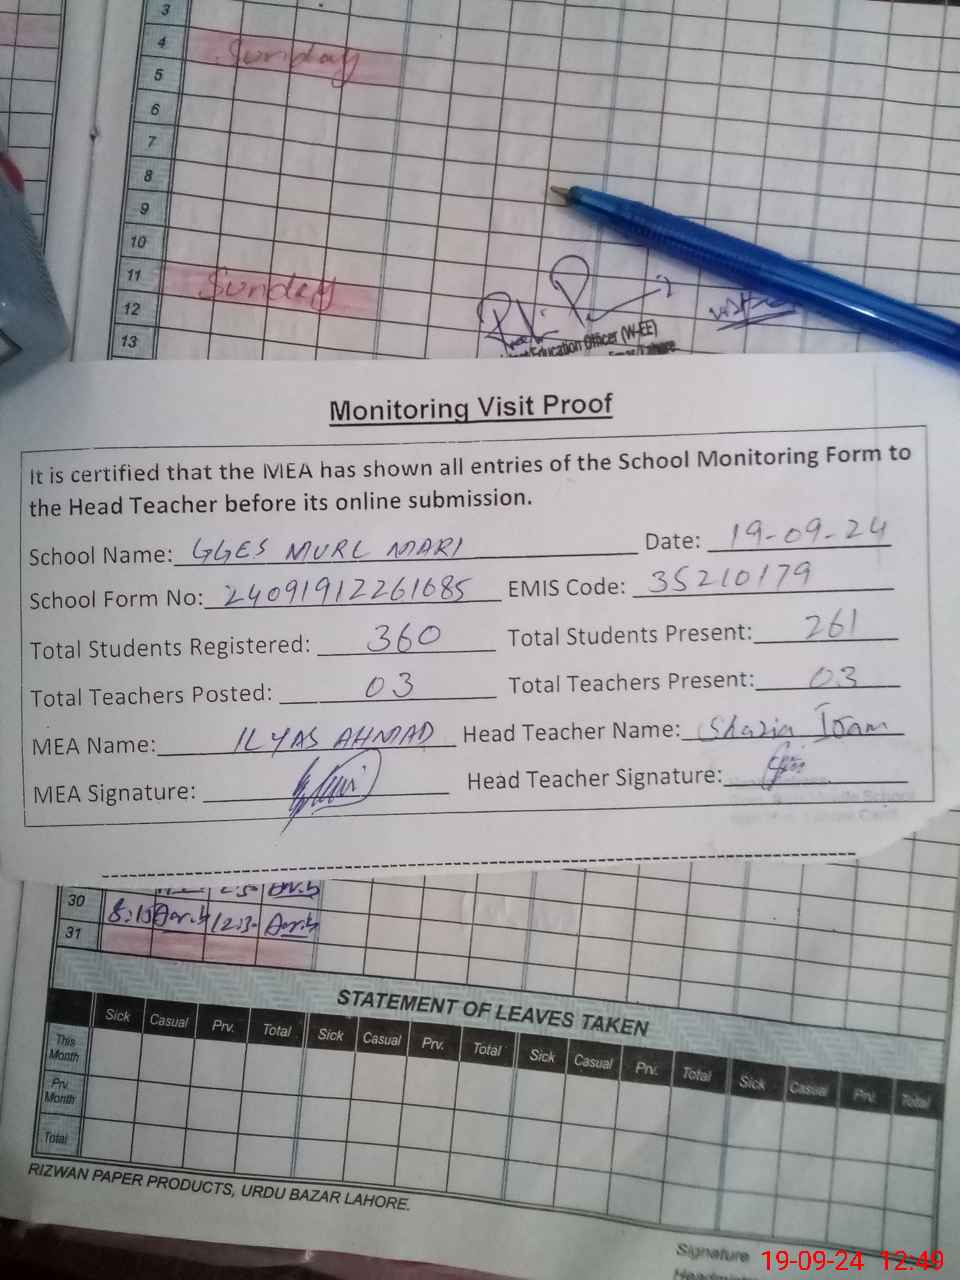 3
4 Sunday
5
6
7
8
9
10
11 Sunday
12
13
Education Officer (W-EE)
Monitoring Visit Proof
It is certified that the MEA has shown all entries of the School Monitoring Form to
the Head Teacher before its online submission.
School Name: GGES MURL MARI Date: 19-09-24
School Form No: 24091912261685 EMIS Code: 35210179
Total Students Registered: 360 Total Students Present: 261
Total Teachers Posted: 03 Total Teachers Present: 03
MEA Name: ILYAS AHMAD Head Teacher Name: Shazia
MEA Signature: Head Teacher Signature:
30 8:15 12:3-
31
STATEMENT OF LEAVES TAKEN
Sick Casual Prv. Total Sick Casual Prv. Total Sick Casual Prv. Total Sick Casual Prv. Total
This Month
Prv. Month
Total
RIZWAN PAPER PRODUCTS, URDU BAZAR LAHORE.
Signature
19-09-24 12:49